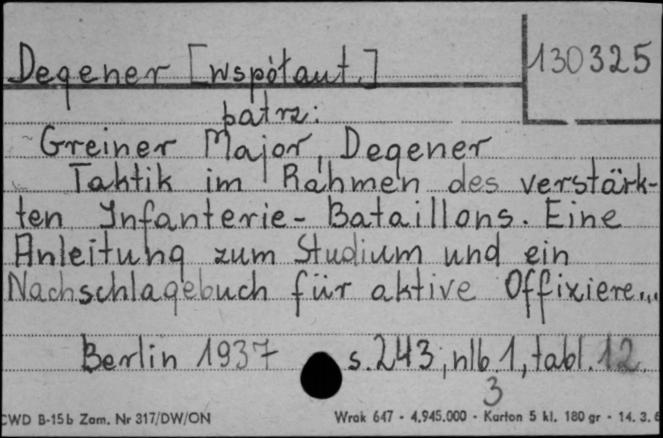 130325
Degener [współaut.]
patrz:
Greiner Major, Degener
Taktik im Rahmen des verstärk-
ten Infanterie-Bataillons. Eine
Anleitung zum Studium und ein
Nachschlagebuch für aktive Offixiere...
Berlin 1937 s. 243, nlb. 1, tabl. 12
3
CWD B-15b Zam. Nr 317/DW/ON Wrak 647 - 4.945.000 - Karton 5 kl. 180 gr - 14.3.6